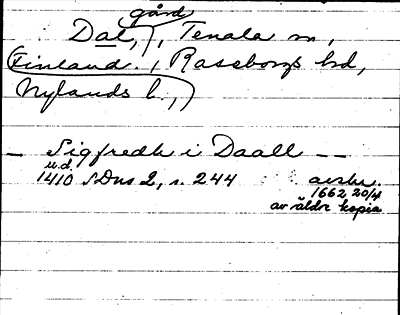 gård
Dal, Tenala sn,
Finland., Raseborgs hd,
Nylands l.,
– Sigfredh i Daall – –
u.d.
1410 SDns 2, s. 244 avskr.
1662 20/4
av äldre kopia